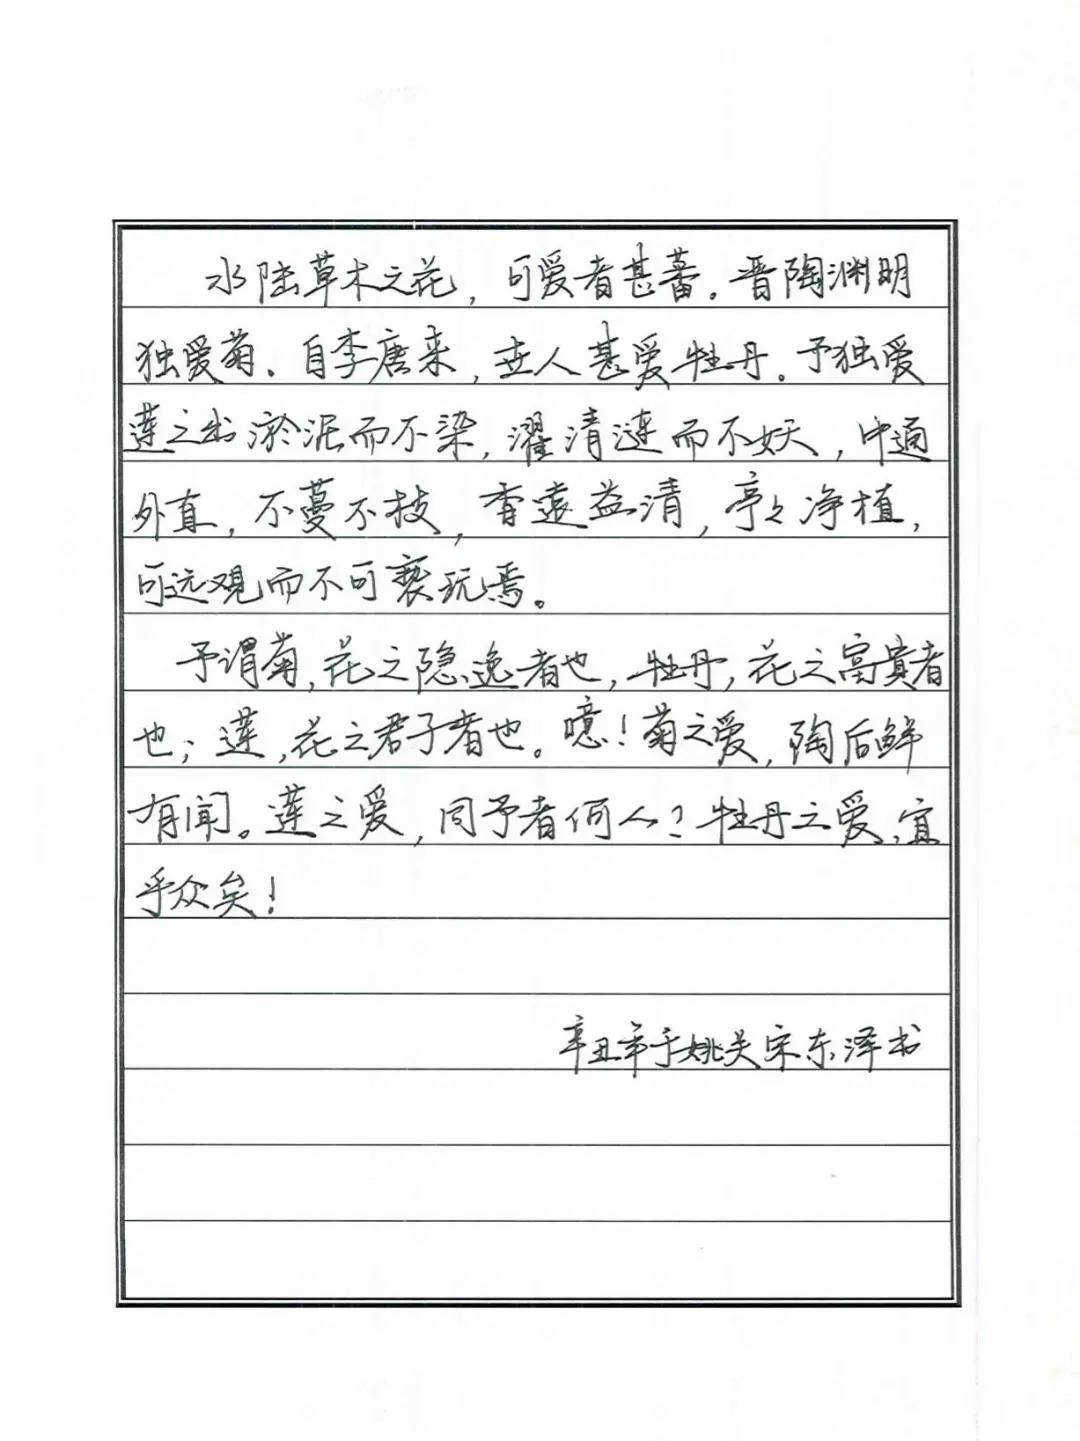 水陆草木之花，可爱者甚蕃。晋陶渊明
独爱菊。自李唐来，世人甚爱牡丹。予独爱
莲之出淤泥而不染，濯清涟而不妖，中通
外直，不蔓不枝，香遠益清，亭々净植，
可远观而不可亵玩焉。
予谓菊，花之隐逸者也，牡丹，花之富貴者
也；莲，花之君子者也。噫！菊之爱，陶后鲜
有闻。莲之爱，同予者何人？牡丹之爱，宜
乎众矣！
辛丑年于姚关宋东泽书